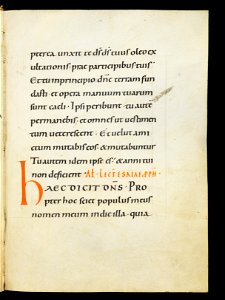 pterea unxit te dˉs dˉs tuus oleo ex
ultationis prae participibus tuis
Et tu in principio dnˉe terram fun
dasti · et opera manuum tuarum
sunt caeli · Ipsi peribunt · tu autem
permanebis · et omnes ut vestimen
tum veterescent · Et velut ami
ctum mutabis eos & mutabuntur
Tu autem idem ipse es · & anni tui
non deficient
HAEC DICIT DNˉS · Pro
pter hoc sciet populus meus
nomen meum in die illa · quia